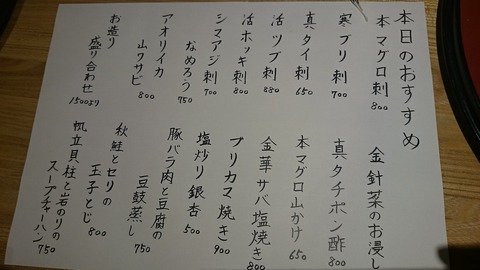 本日のおすすめ
本マグロ刺 800
寒ブリ刺 700
真タイ刺 650
活ツブ刺 880
活ホッキ刺 800
シマアジ刺 700
なめろう 750
アオリイカ
山ワサビ 800
お造り
盛り合わせ
1500より
金針菜のお浸し
真タチポン酢 800
本マグロ山かけ 650
金華サバ塩焼き 800
ブリカマ焼き 900
塩炒り銀杏 500
豚バラ肉と豆腐の
豆鼓蒸し 750
秋鮭とセリの
玉子とじ 800
帆立貝柱と岩のりの
スープチャーハン 750